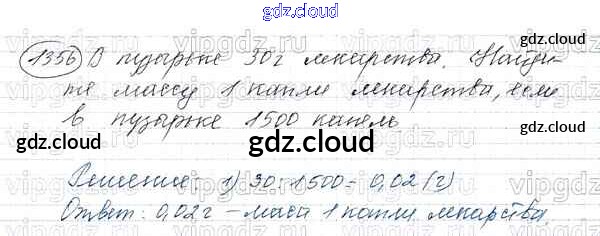 gdz.cloud
1356 В пузырьке 30 г лекарства. Найди-
те массу 1 капли лекарства, если
в пузырьке 1500 капель
gdz.cloud
gdz.cloud
gdz.cloud
gdz.cloud
Решение: 1) 30 : 1500 = 0,02 (г)
Ответ: 0,02 г – маса 1 капли лекарства.
gdz.cloud
gdz.cloud